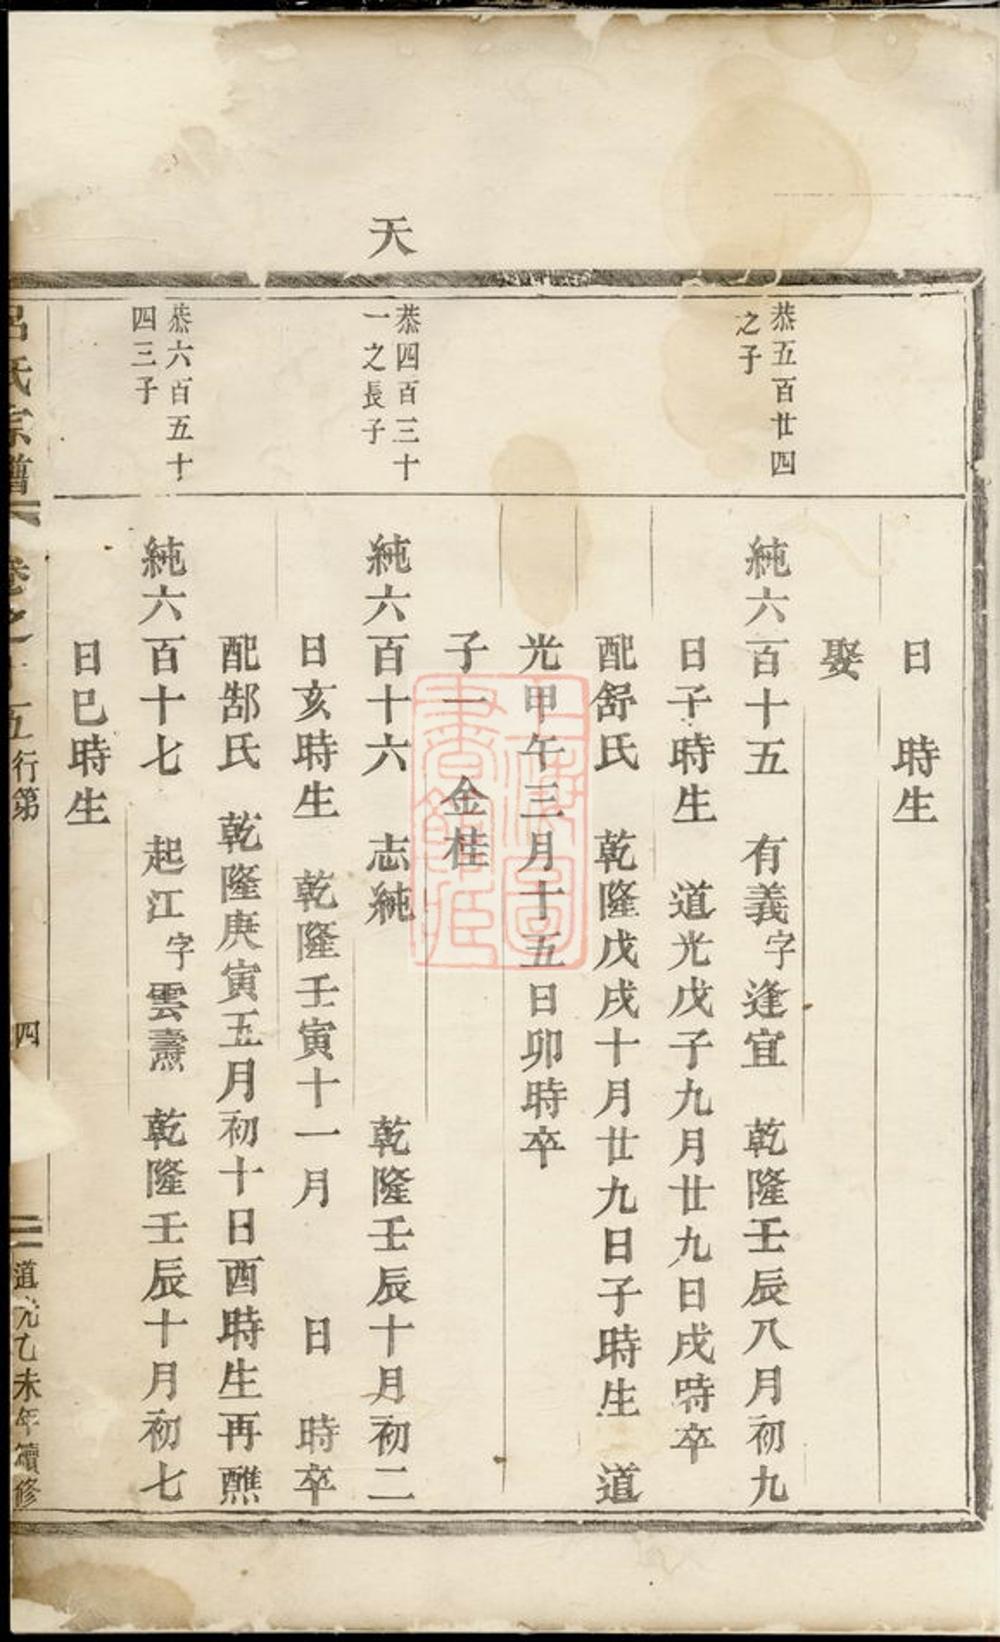 天
恭五百廿四
之子
恭四百三十
一之長子
恭六百五十
四三子
日 時生
娶
純六百十五 有義字逢宜 乾隆壬辰八月初九
日子時生 道光戊子九月廿九日戌時卒
配舒氏 乾隆戊戌十月廿九日子時生 道
光甲午三月十五日卯時卒
子一 金桂
純六百十六 志純 乾隆壬辰十月初二
日亥時生 乾隆壬寅十一月 日 時卒
配郜氏 乾隆庚寅五月初十日酉時生再醮
純六百十七 起江字雲燾 乾隆壬辰十月初七
日巳時生
呂氏宗譜 卷之十五行第 四 道光乙未年續修
上海圖書館藏